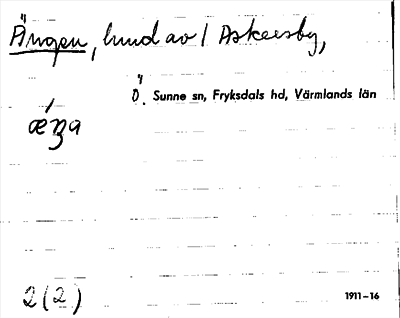 Ängen, lund av 1 Askersby,
Ö. Sunne sn, Fryksdals hd, Värmlands län
2(2)
1911–16